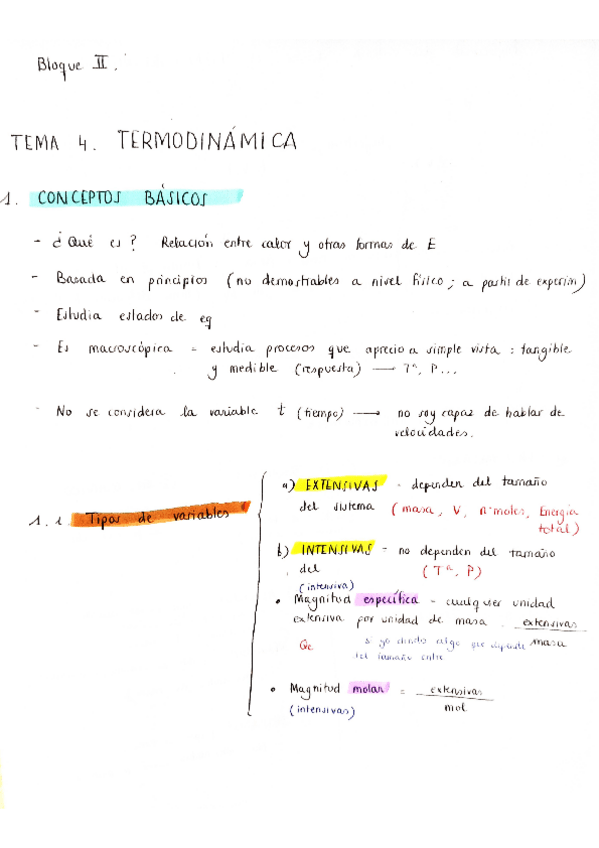 Bloque II.
TEMA 4. TERMODINÁMICA
1. CONCEPTOS BÁSICOS
- ¿Qué es? Relación entre calor y otras formas de E
- Basada en principios (no demostrables a nivel físico; a partir de experim)
- Estudia estados de eq
- Es macroscópica = estudia procesos que aprecio a simple vista: tangible
y medible (respuesta) → Tª, P...
- No se considera la variable t (tiempo) → no soy capaz de hablar de
velocidades.
1.1. Tipos de variables
a) EXTENSIVAS - dependen del tamaño
del sistema (masa, V, nºmoles, Energía
total)
b) INTENSIVAS - no dependen del tamaño
del (Tª, P)
(intensiva)
• Magnitud específica - cualquier unidad
extensiva por unidad de masa. extensivas
masa
Qe si yo divido algo que depende
del tamaño entre
• Magnitud molar = extensivas
mol
(intensivas)